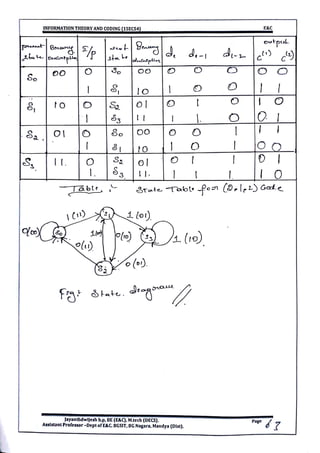 INFORMATION THEORY AND CODING (15EC54) E&C
present state Binary description I/p next state Binary description d_l d_l-1 d_l-2 output c(1) c(2)
S0 00 0 S0 00 0 0 0 0 0
1 S1 10 1 0 0 1 1
S1 10 0 S2 01 0 1 0 1 0
1 S3 11 1 1. 0 0 1
S2 01 0 S0 00 0 0 1 1 1
1 S1 10 1 0 1 0 0
S3 11. 0 S2 01 0 1 1 0 1
1. S3 11. 1 1 1. 1 0
Table :- State Table for (2,1,2) Code
1(11) S1 1 (01)
0(00) S0 0(10) S3 1 (10)
0(11)
S2 0 (01).
Fig: State. diagram //
Jayanthdwijesh h.p, BE (E&C), M.tech (DECS).
Assistant Professor –Dept of E&C. BGSIT, BG Nagara, Mandya (Dist).
Page 63